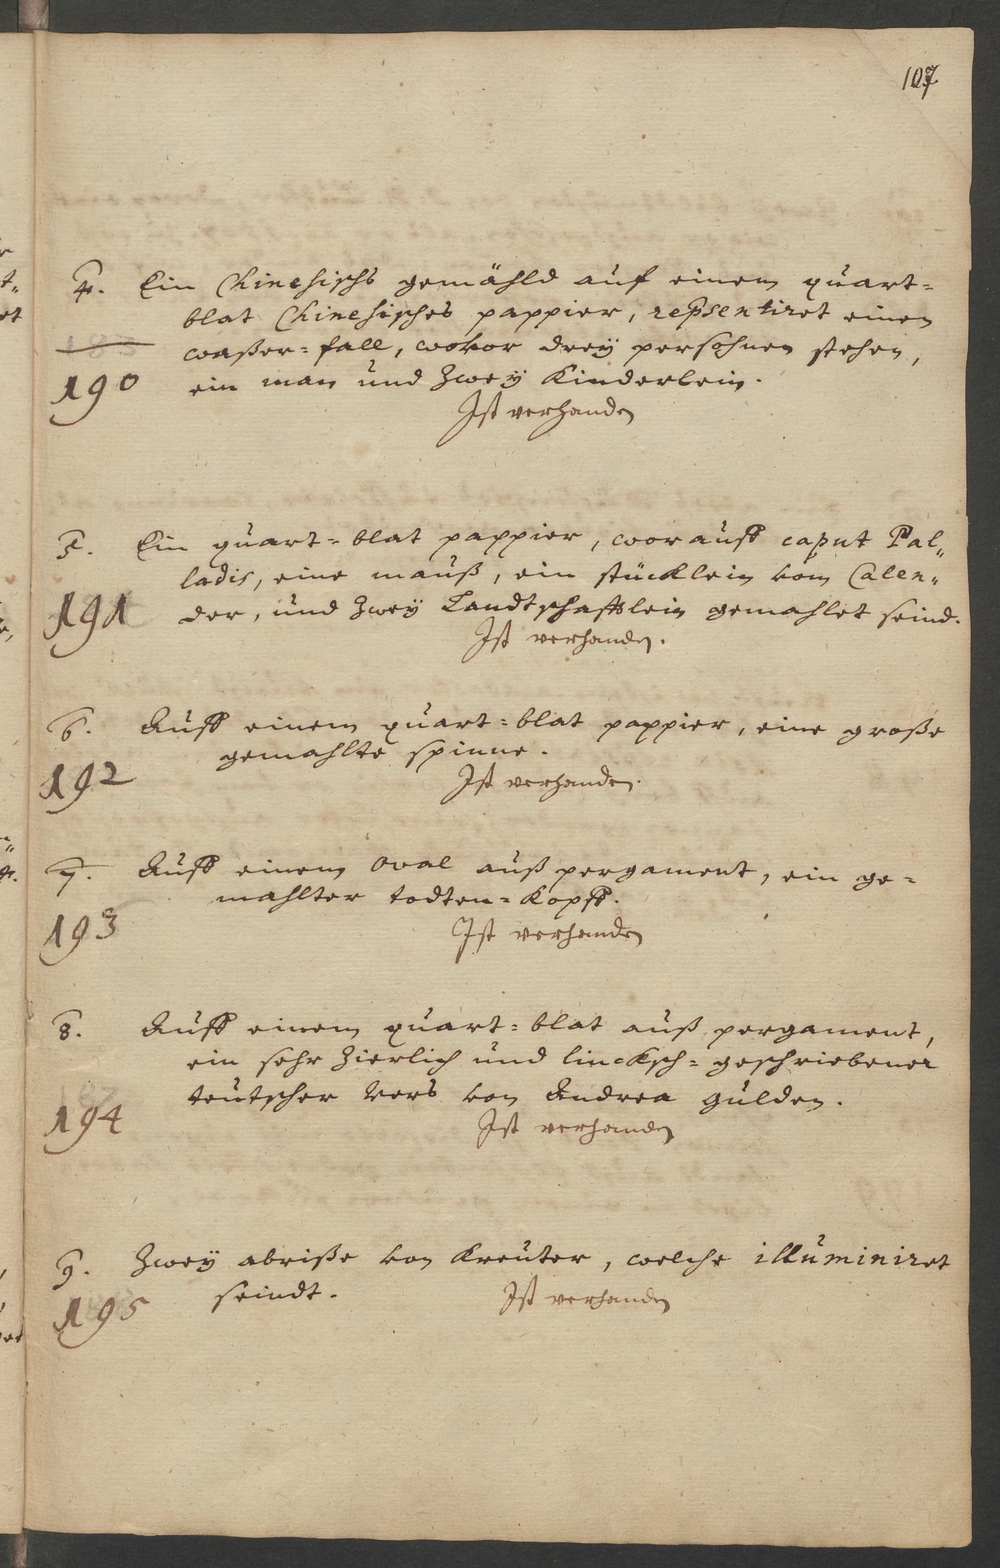 107
4. Ein Chinesischs gemähld auf einem quart=
blat Chinesisches pappier, repsentiret einen
waßer=fall, wovor drey persohnen stehen,
190 ein man und Zwey Kinderlein.
Ist verhanden
5. Ein quart=blat pappier, worauff caput Pal„
ladis, eine mauß, ein stücklein vom Calen„
191 der, und Zwey Landtschafftlein gemahlet seind.
Ist verhanden.
6. Auff einem quart=blat pappier, eine große
gemahlte spinne.
192 Ist verhanden.
7. Auff einem Oval auß pergament, ein ge=
mahlter todten=Kopff.
193 Ist verhanden
8. Auff einem quart=blat auß pergament,
ein sehr Zierlich und lincksch=geschriebener
teutscher Vers von Andrea Gülden.
194 Ist verhanden
9. Zwey abriße von Kreuter, welche illuminiret
seindt. Ist verhanden
195